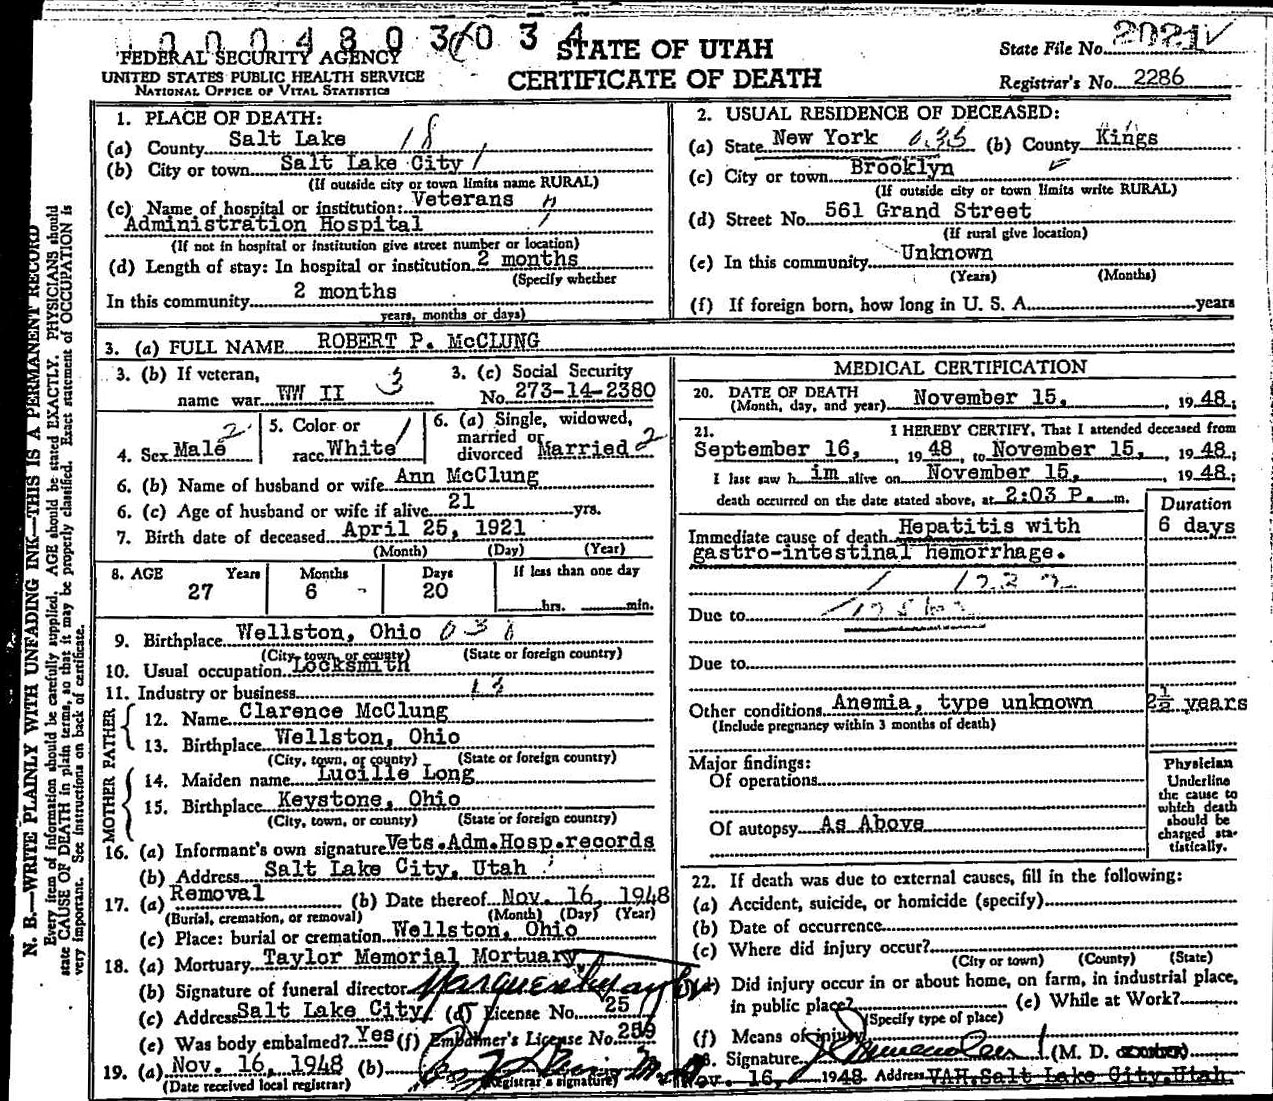 0 0 0 4 8 0 3 0 3 4
FEDERAL SECURITY AGENCY
UNITED STATES PUBLIC HEALTH SERVICE
NATIONAL OFFICE OF VITAL STATISTICS
STATE OF UTAH
CERTIFICATE OF DEATH
State File No. 2021
Registrar's No. 2286
N. B.—WRITE PLAINLY WITH UNFADING INK—THIS IS A PERMANENT RECORD
Every item of information should be carefully supplied. AGE should be stated EXACTLY. PHYSICIANS should
state CAUSE OF DEATH in plain terms, so that it may be properly classified. Exact statement of OCCUPATION is
very important. See instructions on back of certificate.
1. PLACE OF DEATH:
(a) County Salt Lake 18
(b) City or town Salt Lake City 1
(If outside city or town limits name RURAL)
(c) Name of hospital or institution: Veterans
Administration Hospital
(If not in hospital or institution give street number or location)
(d) Length of stay: In hospital or institution 2 months
(Specify whether
In this community 2 months
years, months or days)
2. USUAL RESIDENCE OF DECEASED:
(a) State New York (b) County Kings
(c) City or town Brooklyn
(If outside city or town limits write RURAL)
(d) Street No. 561 Grand Street
(If rural give location)
(e) In this community Unknown
(Years) (Months)
(f) If foreign born, how long in U. S. A. years
3. (a) FULL NAME ROBERT P. McCLUNG
3. (b) If veteran,
name war WW II 3
3. (c) Social Security
No. 273-14-2380
4. Sex Male 2
5. Color or
race White 1
6. (a) Single, widowed,
married or
divorced Married 2
6. (b) Name of husband or wife Ann McClung
6. (c) Age of husband or wife if alive 21 yrs.
7. Birth date of deceased April 25, 1921
(Month) (Day) (Year)
8. AGE Years Months Days If less than one day
27 6 20 hrs. min.
9. Birthplace Wellston, Ohio
(City, town, or county) (State or foreign country)
10. Usual occupation Locksmith
11. Industry or business 13
FATHER
12. Name Clarence McClung
13. Birthplace Wellston, Ohio
(City, town, or county) (State or foreign country)
MOTHER
14. Maiden name Lucille Long
15. Birthplace Keystone, Ohio
(City, town, or county) (State or foreign country)
16. (a) Informant's own signature Vets.Adm.Hosp.records
(b) Address Salt Lake City, Utah
17. (a) Removal (b) Date thereof Nov. 16, 1948
(Burial, cremation, or removal) (Month) (Day) (Year)
(c) Place: burial or cremation Wellston, Ohio
18. (a) Mortuary Taylor Memorial Mortuary
(b) Signature of funeral director
(c) Address Salt Lake City (d) License No. 25
(e) Was body embalmed? Yes (f) Embalmer's License No. 259
19. (a) Nov. 16, 1948 (b)
(Date received local registrar) (Registrar's signature)
MEDICAL CERTIFICATION
20. DATE OF DEATH
(Month, day, and year) November 15, , 19 48;
21. I HEREBY CERTIFY, That I attended deceased from
September 16, , 19 48, to November 15, , 19 48;
I last saw h im alive on November 15, , 19 48;
death occurred on the date stated above, at 2:03 P. m.
Duration
Immediate cause of death Hepatitis with 6 days
gastro-intestinal hemorrhage.
Due to
Due to
Other conditions Anemia, type unknown 2½ years
(Include pregnancy within 3 months of death)
Major findings:
Of operations
Of autopsy As Above
Physician
Underline
the cause to
which death
should be
charged sta-
tistically.
22. If death was due to external causes, fill in the following:
(a) Accident, suicide, or homicide (specify)
(b) Date of occurrence
(c) Where did injury occur?
(City or town) (County) (State)
(d) Did injury occur in or about home, on farm, in industrial place,
in public place? (e) While at Work?
(Specify type of place)
(f) Means of injury
Signature (M. D.
Nov. 16, 1948 Address VAH.Salt Lake City.Utah